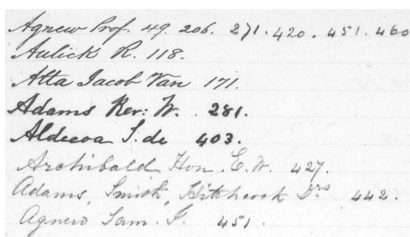 Agnew Prof. 49. 206. 271. 420. 451. 460
Aulick R. 118.
Alta Jacob Van 171.
Adams Rev: W. 281.
Aldecoa J. de 403.
Archibald Hon. E. W. 427.
Adams, Smith, Hitchcock Drs 442.
Agnew Sam. J. 451.